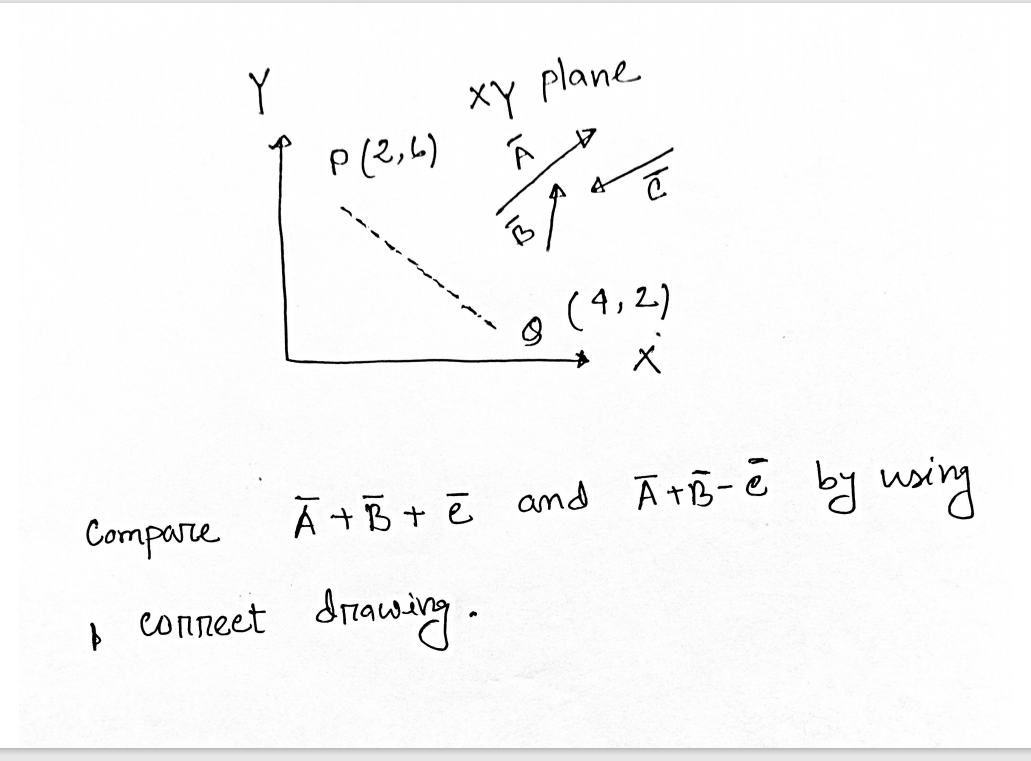 Y
XY plane
P (2,6)
Ā
C̄
B̄
Q (4,2)
X
Compare Ā + B̄ + C̄ and Ā + B̄ - C̄ by using
correct drawing.